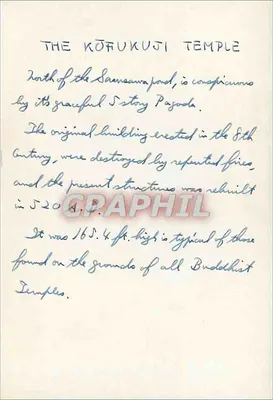 THE KŌFUKUJI TEMPLE
North of the Sarusawa pond, is conspicuous
by its graceful 5 story Pagoda.
The original building erected in the 8th
Century, were destroyed by repeated fires,
and the present structures was rebuilt
in 520 A.D.
GRAPHIL
It was 165.4 ft. high is typical of those
found on the grounds of all Buddhist
Temples.